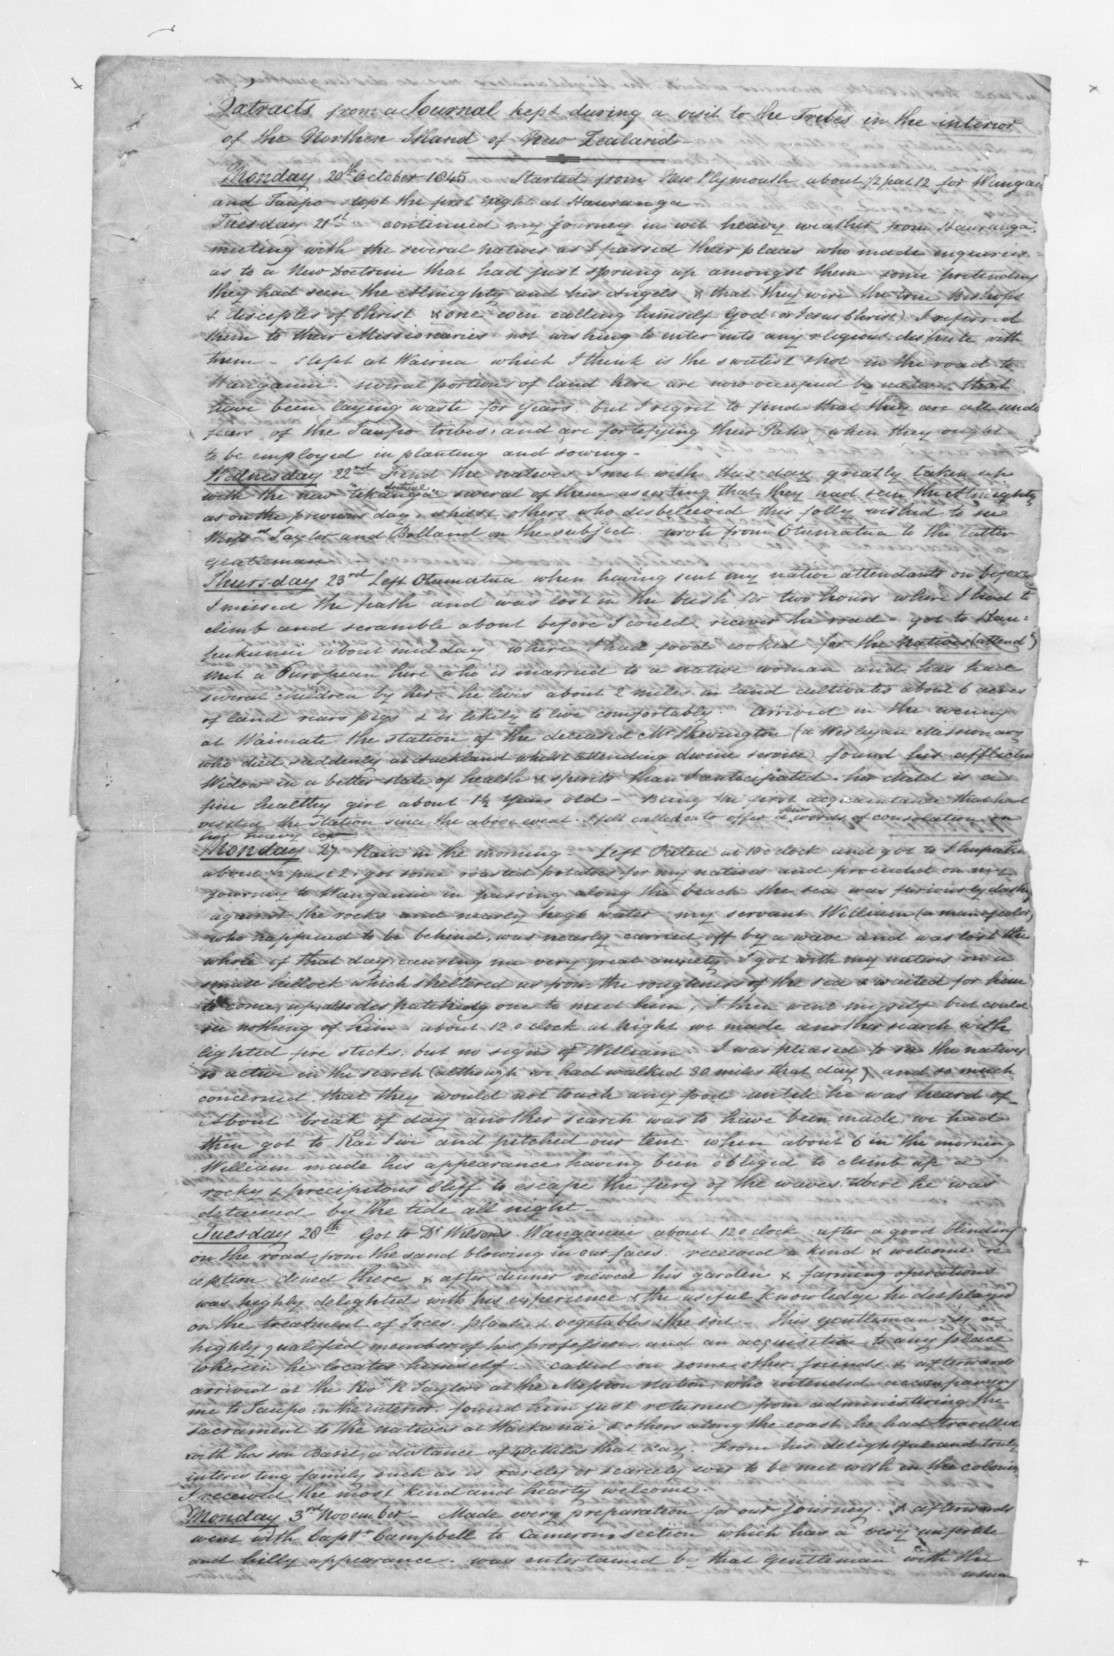 Extracts from a Journal kept during a visit to the Tribes in the interior
of the Northern Island of New Zealand
Monday 20th October 1845 Started from New Plymouth about 1/2 past 12 for Wangan
and Taupo slept the first night at Hauranga
Tuesday 21st continued my journey in wet heavy weather from Hauranga
meeting with the several natives as I passed their places who made enquiries
as to a New Doctrine that had just sprung up amongst them some pretending
they had seen the Almighty and his Angels & that they were the true Bishops
& disciples of Christ & one even calling himself God (or Jesus Christ) I referred
them to their Missionaries not wishing to enter into any religious dispute with
them - slept at Wairua which I think is the sweetest spot in the road to
Wanganui. several portions of land here are now occupied by natives that
have been laying waste for years. but I regret to find that they are all unde
fears of the Taupo tribes, and are fortifying their Pahs when they ought
to be employed in planting and sowing -
Wednesday 22nd Find the natives I met with this day greatly taken up
with the new "tikanga" doctrine several of them asserting that they had seen the Almighty
as on the previous day, whilst others who disbelieved this folly wished to see
Messrs Taylor and Bolland on the subject. wrote from Otumatua to the latter
gentleman -
Thursday 23rd Left Otumatua when having sent my native attendants on before
I missed the path and was lost in the bush for two hours where I had to
climb and scramble about before I could recover the road - got to
about midday where I had food cooked for the Natives (attends)
met a European here who is married to a native woman and has had
several children by her. he lives about 2 miles in land cultivates about 6 acres
of land rears pigs & is likely to live comfortably. Arrived in the evening
at Waimate the station of the deceased Mr Skevington (a Wesleyan Missionary
who died suddenly at Auckland whilst attending divine service) found his afflicted
Widow in a better state of health & spirits than I anticipated. her child is a
fine healthy girl about 1½ years old - Being the first acquaintance that had
visited the station since the above event. I felt called on to offer a few words of consolation on
her heavy loss
Monday 27 Rain in the morning. Left Patea at 10 o'clock and got to
about 1/2 past 2. got some roasted potatoes for my natives and proceeded on my
journey to Wanganui in passing along the beach the sea was furiously dashing
against the rocks and nearly high water my servant William (a man of color)
who happened to be behind, was nearly carried off by a wave and was lost the
whole of that day causing me very great anxiety. I got with my natives on a
small hillock which sheltered us from the roughness of the sea & waited for him
to come up, also despatching one to meet him, I then went myself but could
see nothing of him about 12 o'clock at night we made another search with
lighted fire sticks. but no signs of William. I was pleased to see the natives
so active in the search (although we had walked 30 miles that day) and so much
concerned that they would not touch any food until he was heard of
About break of day another search was to have been made, we had
then got to Kai Iwi and pitched our tent when about 6 in the morning
William made his appearance, having been obliged to climb up a
rocky & precipitous Cliff to escape the fury of the waves. where he was
detained by the tide all night -
Tuesday 28th Got to Dr Wilsons Wanganui about 12 o'clock after a good blinding
on the road from the sand blowing in our faces. received a kind & welcome re
ception dined there & after dinner viewed his garden & farming operations
was highly delighted with his experience & the useful knowledge he displayed
on the treatment of Trees, plants & vegetables & the soil - this gentleman is a
highly qualified member of his profession and an acquisition to any place
wherein he locates himself. called on some other friends & afterwards
arrived at the Revd R Taylors at the Mission station, who intended accompanying
me to Taupo in the interior. found him just returned from administering the
sacrament to the natives at Waikanae & others along the coast. he had travelled
with his son Basil, a distance of 40 Miles that day. From his delightful and truly
interesting family such as is rarely or scarcely ever to be met with in the colonies
I received the most kind and hearty welcome.
Monday 3rd November - Made every preparation for our journey. & afterwards
went with Captn Campbell to Camerons section which has a very
and hilly appearance. was entertained by that gentleman with the